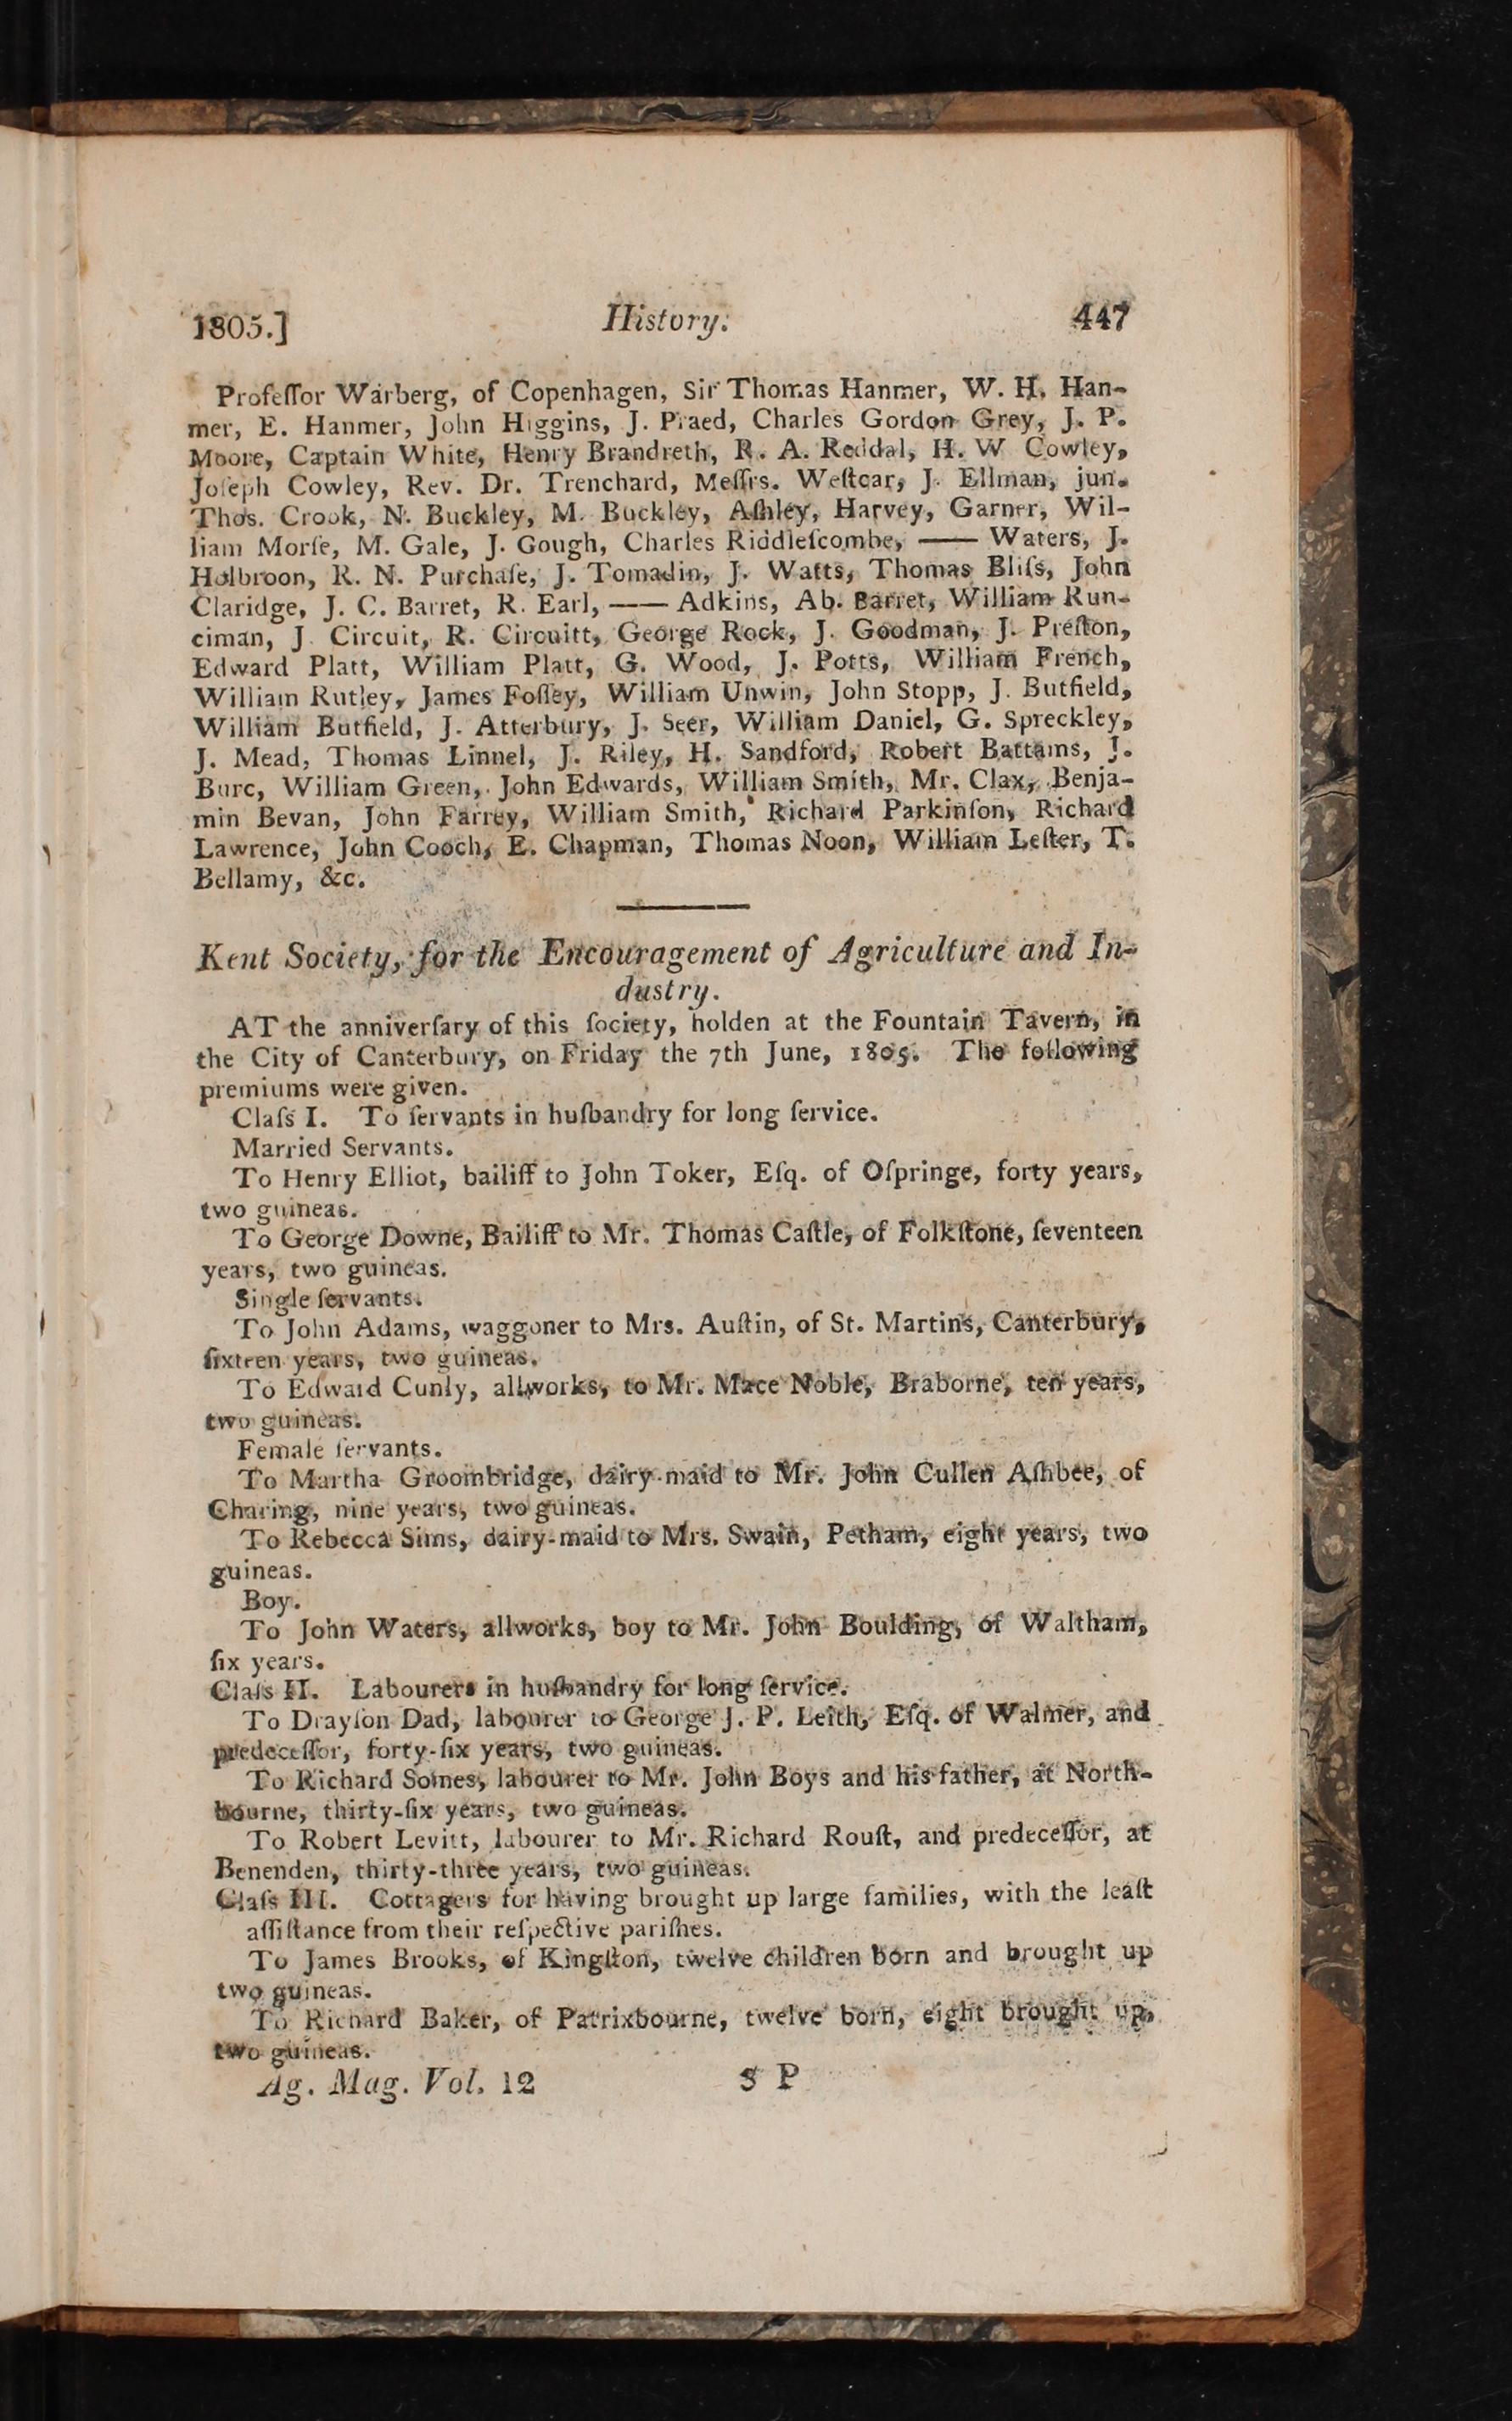 1805.] History. 447
Profeſſor Warberg, of Copenhagen, Sir Thomas Hanmer, W. H. Han-
mer, E. Hanmer, John Higgins, J. Praed, Charles Gordon Grey, J. P.
Moore, Captain White, Henry Brandreth, R. A. Reddal, H. W. Cowley,
Joſeph Cowley, Rev. Dr. Trenchard, Meſſrs. Weſtcar, J. Ellman, jun.
Thos. Crook, N. Buckley, M. Buckley, Aſhley, Harvey, Garner, Wil-
liam Morſe, M. Gale, J. Gough, Charles Riddleſcombe, —— Waters, J.
Holbroon, R. N. Purchaſe, J. Tomadin, J. Watts, Thomas Bliſs, John
Claridge, J. C. Barret, R. Earl, —— Adkins, Ab. Barret, William Run-
ciman, J. Circuit, R. Circuitt, George Rock, J. Goodman, J. Preſton,
Edward Platt, William Platt, G. Wood, J. Potts, William French,
William Rutley, James Foſſey, William Unwin, John Stopp, J. Butfield,
William Butfield, J. Atterbury, J. Seer, William Daniel, G. Spreckley,
J. Mead, Thomas Linnel, J. Riley, H. Sandford, Robert Battams, J.
Burc, William Green, John Edwards, William Smith, Mr. Clax, Benja-
min Bevan, John Farrey, William Smith, Richard Parkinſon, Richard
Lawrence, John Cooch, E. Chapman, Thomas Noon, William Leſter, T.
Bellamy, &c.
Kent Society, for the Encouragement of Agriculture and In-
dustry.
AT the anniverſary of this ſociety, holden at the Fountain Tavern, in
the City of Canterbury, on Friday the 7th June, 1805. The following
premiums were given.
Claſs I. To ſervants in huſbandry for long ſervice.
Married Servants.
To Henry Elliot, bailiff to John Toker, Eſq. of Oſpringe, forty years,
two guineas.
To George Downe, Bailiff to Mr. Thomas Caſtle, of Folkſtone, ſeventeen
years, two guineas.
Single ſervants.
To John Adams, waggoner to Mrs. Auſtin, of St. Martins, Canterbury,
ſixteen years, two guineas.
To Edward Cunly, allworks, to Mr. Mace Noble, Braborne, ten years,
two guineas.
Female ſervants.
To Martha Groombridge, dairy-maid to Mr. John Cullen Aſhbee, of
Charing, nine years, two guineas.
To Rebecca Sims, dairy-maid to Mrs. Swain, Petham, eight years, two
guineas.
Boy.
To John Waters, allworks, boy to Mr. John Boulding, of Waltham,
ſix years.
Claſs II. Labourers in huſbandry for long ſervice.
To Drayſon Dad, labourer to George J. P. Leith, Eſq. of Walmer, and
predeceſſor, forty-ſix years, two guineas.
To Richard Somes, labourer to Mr. John Boys and his father, at North-
bourne, thirty-ſix years, two guineas.
To Robert Levitt, labourer to Mr. Richard Rouſt, and predeceſſor, at
Benenden, thirty-three years, two guineas.
Claſs III. Cottagers for having brought up large families, with the leaſt
aſſiſtance from their reſpective pariſhes.
To James Brooks, of Kingſton, twelve children born and brought up
two guineas.
To Richard Baker, of Patrixbourne, twelve born, eight brought up,
two guineas.
Ag. Mag. Vol. 12 3 P